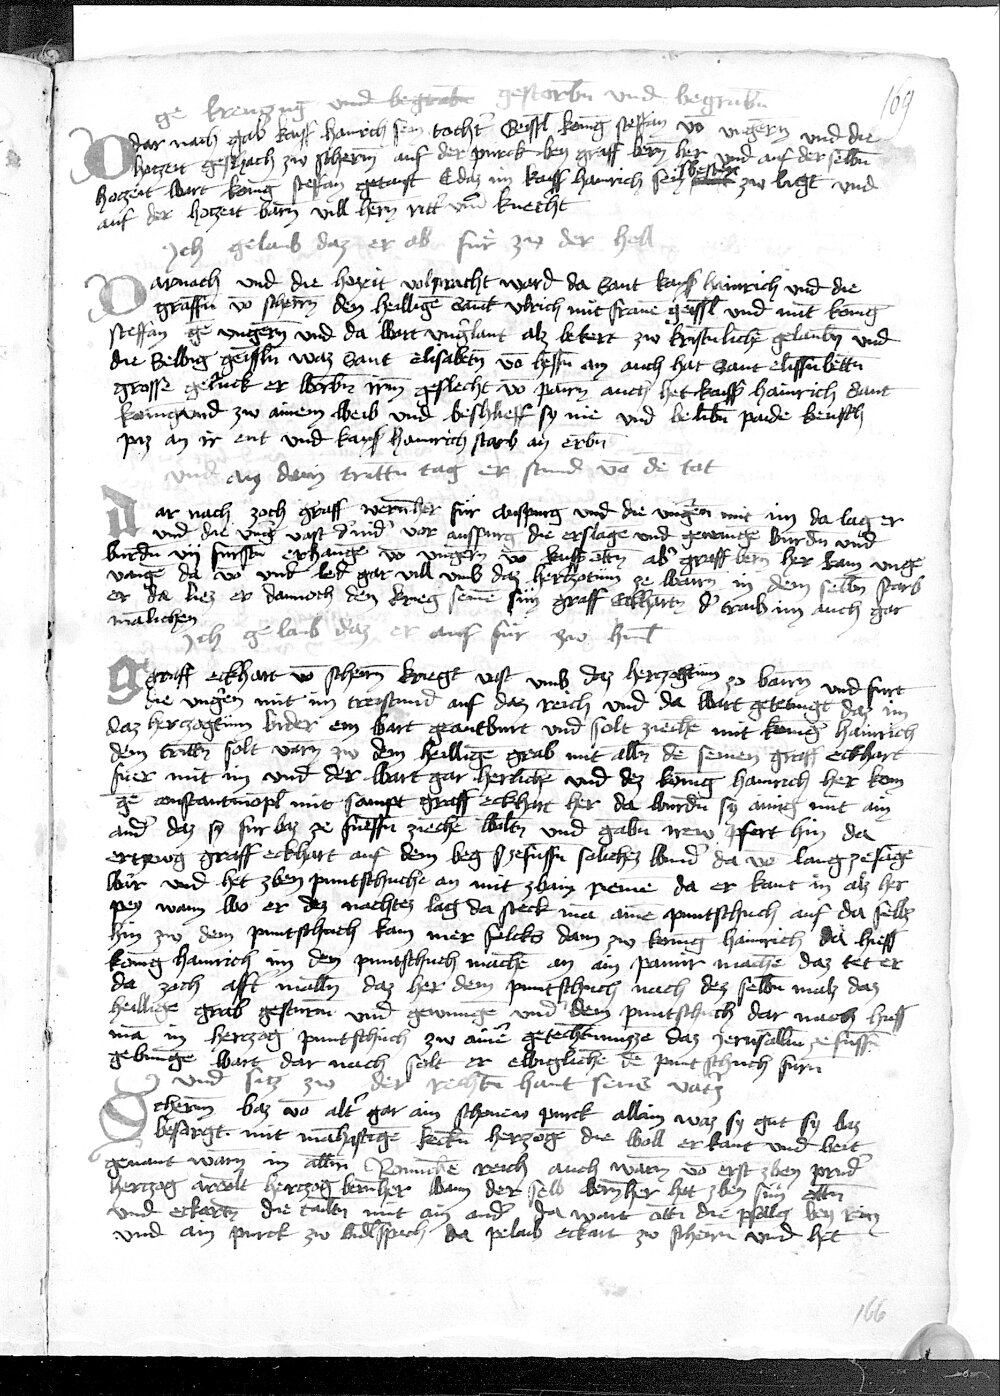 ge kreuczing und begrabn gestorbn und begrabn
109
dar nach gab kaiss hainrich sein tocht Geissl konig steffan vo ungern und die
hoczeit geschach zw scherrn auf der purck bey graff wern her und auf der selbn
hoczeit wart konig steffan getauft daz im kaiss hainrich zw legt und
auf der hoczeit warn vill hern ritt und knecht
Ich gelaub daz er ab fur zw der hell
Darnach und die hoczeit volpracht ward da Sant kaiss hainrich und die
graffn vo scherrn den heillige Sant ulrich mit frawe geissl und mit konig
steffan ge ungern und da wart ungerlant alz bekert zw kristnliche gelaubn und
die Selbig geissln waz Sant elisabetn vo hessn an auch hat Sant elissabettn
grosse geluck er worbn irm geslecht vo pairn auch het kaiss hainrich Sant
konigund zw ainem weib und beschlieff sy nie und belibn paide keusch
piz an ir ent und kaiss hainrich starb an erbn
und an dem trittn tag er stund vo de tot
dar nach zoch graff wernher fur auspurg und die ungern mit im da lag er
und die ung vast vor auspurg die erslage und gevange wurdn und
wurdn vii furstn erhange vo ungern vo kaiss ottn ab graff wern her kam
da vo und led gar vill umb daz herczotum ze bairn in dem selbn starb
er da liez er dannoch den krieg seine sun graff Eckhartn d traib im auch gar
malichen
Ich gelaub daz er auf fur zw himl
graff eckhart vo scherrn kriegt vast umb daz herczogtum zo bairn und furt
die ungern mit im treystund auf daz reich und da wart geteidingt daz im
daz herczogtum wider ein wart geantwurt und solt zieche mit konig hainrich
dem trittn solt varn zw dem heillige grab mit alln de seinen graff eckhart
fuer mit im und der wart gar herliche und dez konig hainrich her kom
ge constantinopl mit sampt graff eckhart her da wurdn sy ainig mit ain
and daz sy furbaz ze fuessn zieche woltn und gabn irew pfert hin da
graff eckhart auf dem weg zefussn solichez wund da vo lang zesage
war und het zwen puntschuche an mit zwain reme da er kant in alz her
pey wann wo er dez nachtez lag da steck ma aine puntschuch auf da selbs
hin zw dem puntschuch kam mer folcks dann zw konig hainrich da hieff
konig hainrich im den puntschuch mache an ain panir mache daz tet er
da zoch afft malln daz her dem puntschuch nach dez selbn malz daz
heillige grab gesturm und gewunge und dem puntschuch dar nach hieff
ma in herczog puntschuch zw aine getechtnusze daz Jerusalem ze fussn
gewunge wart dar nach solt er ewigliche de puntschuch furn
und sitz zw der rechtn hant seins vatz
Scherrn waz vo alt gar ain schonew purck allain waz sy gut sy waz
besargt mit mahhftige keckn herczoge die woll erkant und weit
genant warn in alln Romische reich auch warn vo erst zwen prud
herczog arnolt herczog wernher wann der selb wernher het zwen sun ottn
und eckartn die tailtn mit ain and da wart ottn die pfallz bey rein
und ain purck zw witlspach da pelaib eckart zw scherrn und het
166